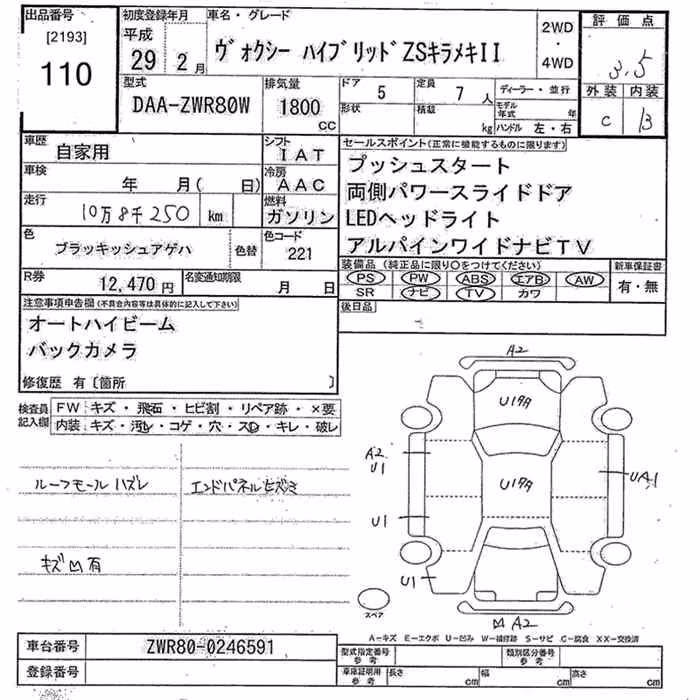 出品番号
[2193]
110
初度登録年月
平成
29 2 月
車名・グレード
ヴォクシー ハイブリッドZSキラメキII
2WD
・
4WD
評価点
3.5
外装 内装
C B
型式
DAA-ZWR80W
排気量
1800
CC
ドア 5
形状
定員 7 人
積載 kg
ディーラー・並行
モデル年式 年
ハンドル 左・右
車歴
自家用
シフト
IAT
車検
年 月( 日)
冷房
AAC
走行
10万8千250 km
燃料
ガソリン
色
ブラッキッシュアゲハ
色替
色コード
221
R券
12,470 円
名変通知期限
月 日
セールスポイント(正常に機能するものに限ります)
プッシュスタート
両側パワースライドドア
LEDヘッドライト
アルパインワイドナビTV
装備品(純正品に限り〇をつけてください)
PS PW ABS エアB AW
SR ナビ TV カワ
新車保証書
有・無
後日品
注意事項申告欄(不具合内容等は具体的に記入して下さい)
オートハイビーム
バックカメラ
修復歴 有〔箇所 〕
検査員
記入欄
FW キズ・飛石・ヒビ割・リペア跡・×要
内装 キズ・汚レ・コゲ・穴・スレ・キレ・破レ
ルーフモールハズレ
エンドパネルヒズミ
キズ凹有
A2
U1タタ
A2
U1
U1タタ
UA1
U1
U1
スペア
凹A2
A-キズ E-エクボ U-凹み W-補修跡 S-サビ C-腐食 XX-交換済
車台番号
ZWR80-0246591
登録番号
型式指定番号
参考
類別区分番号
参考
車庫証明用
参考
長さ cm
幅 cm
高さ cm